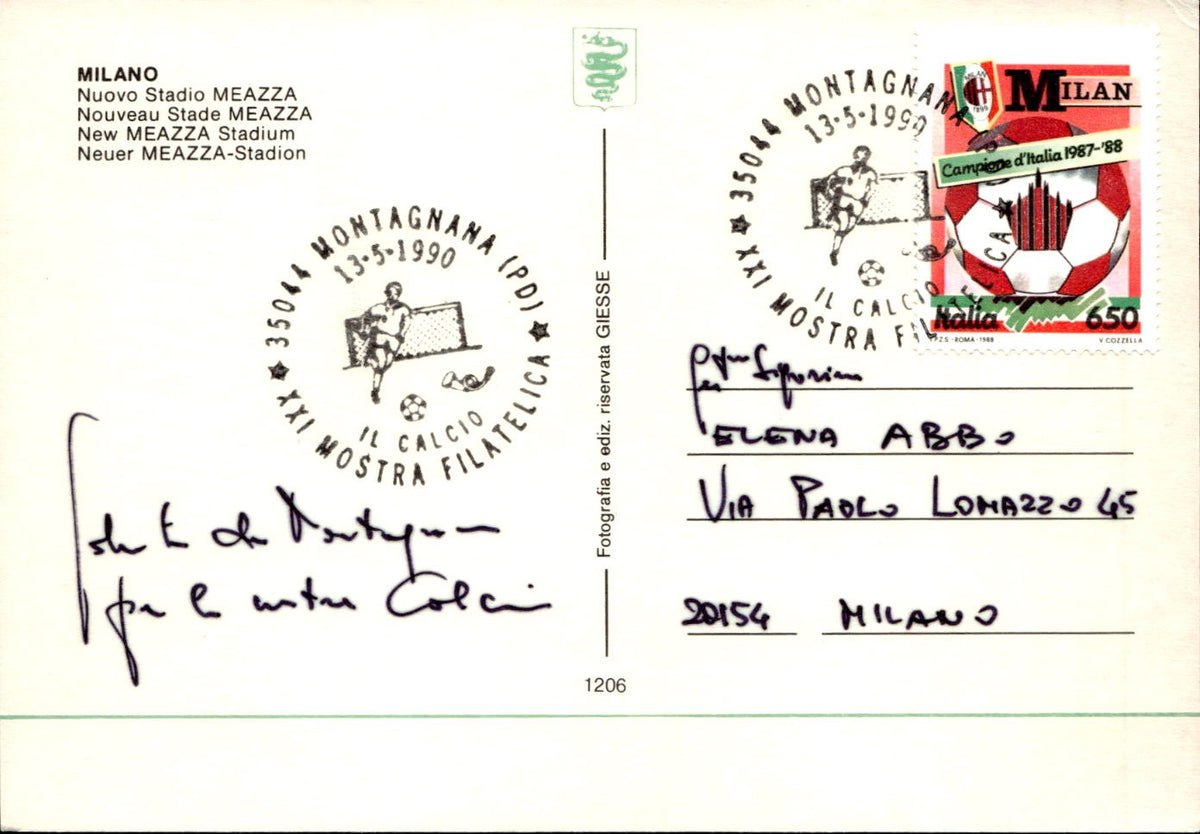 MILANO
Nuovo Stadio MEAZZA
Nouveau Stade MEAZZA
New MEAZZA Stadium
Neuer MEAZZA-Stadion
35044 MONTAGNANA (PD)
13·5·1990
IL CALCIO
XXI MOSTRA FILATELICA
da Montagnana
per la
Fotografia e ediz. riservata GIESSE
1206
35044 MONTAGNANA
13·5·1990
IL CALCIO
XXI MOSTRA FILATELICA
MILAN
1899
MILAN
Campione d'Italia 1987-'88
Italia 650
I.P.Z.S. - ROMA - 1988 V. COZZELLA
ELENA ABBO
VIA PAOLO LOMAZZO 45
20154 MILANO